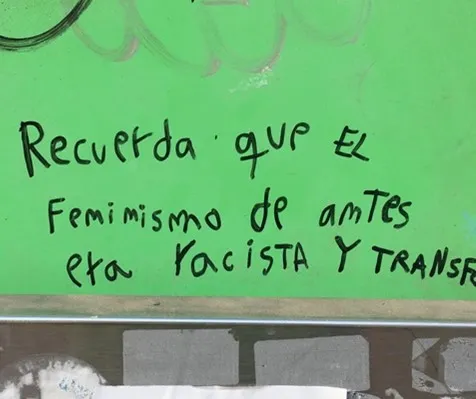 Recuerda que EL
Feminismo de anTes
era racisTA Y TRANSF